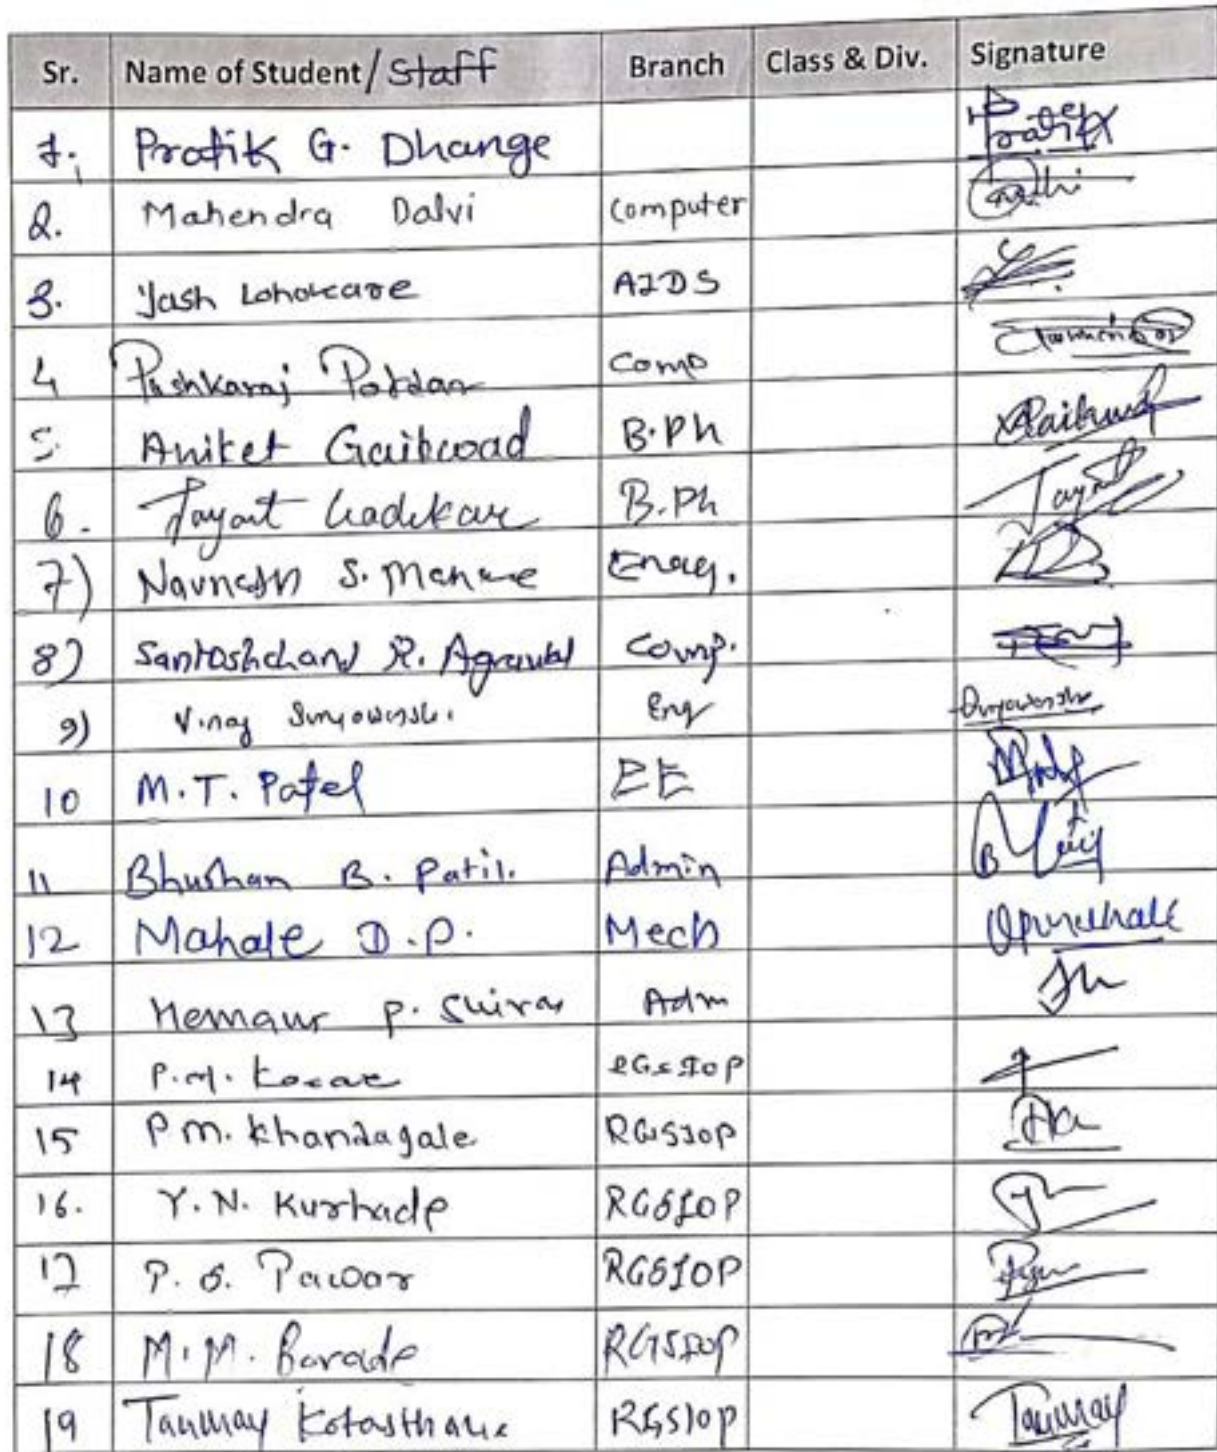 Sr. Name of Student/Staff Branch Class & Div. Signature
1. Pratik G. Dhange Pratik
2. Mahendra Dalvi Computer
3. Yash Lohokare AIDS
4 Pushkaraj Potdar Comp
5. Aniket Gaikwad B.Ph Gaikwad
6. Jayant Gadekar B.Ph Jayant
7) Navnath S. Engg.
8) Santoshchand R. Agrawal Comp.
9) Vinay Suryawanshi Eng Suryawanshi
10 M.T. Patel EE
11 Bhushan B. Patil. Admin
12 Mahale D.P. Mech Dpmahale
13 Hemant P. Adm
14 P.M. RGSIOP
15 P M. Khandagale RGSIOP
16. Y. N. Kurhade RGSIOP
17 P. S. Pawar RGSIOP
18 M. M. Borade RGSIOP
19 Tanmay Kotasthane RGSIOP Tanmay